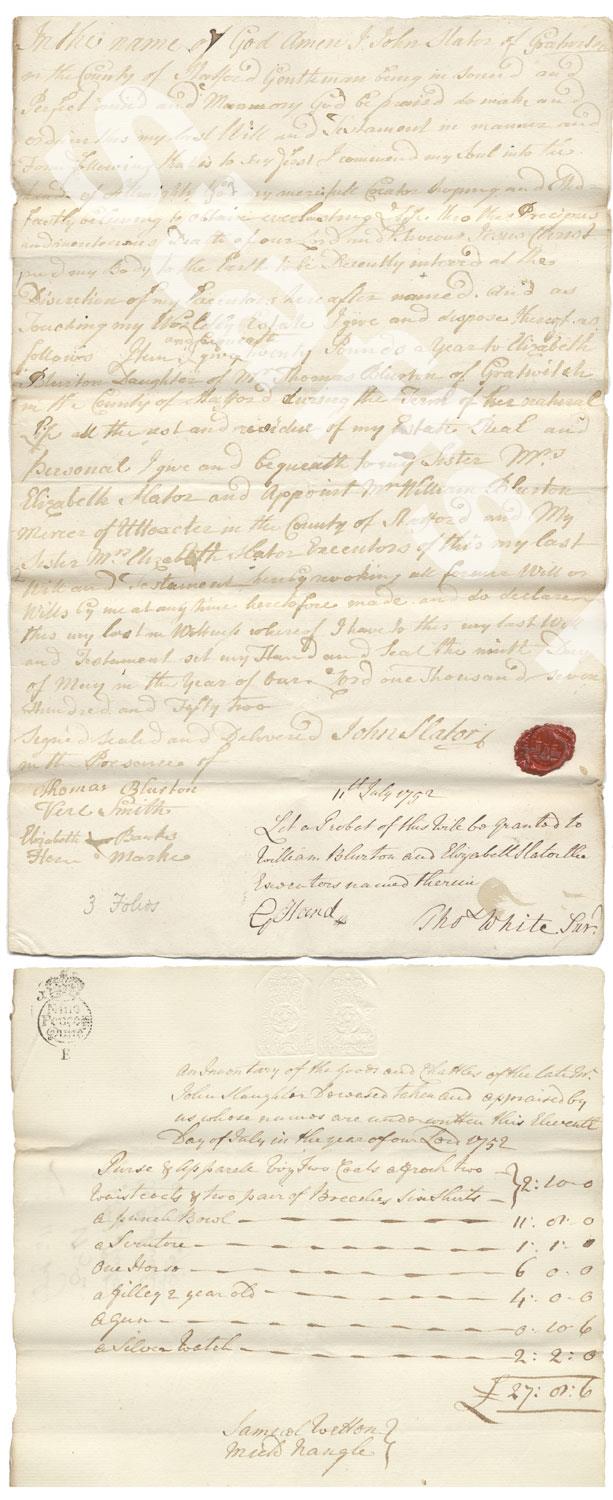 In the name of God Amen I John Slator of Gratwitch
in the County of Stafford Gentleman being in sound and
Perfect mind and Mammory God be praised do make and
ordain this my last Will and Testament in manner and
Form following that is to say first I commend my Soul into the
hands of Almighty God my mercifull Creator hoping and
believing to obtain everlasting Life thro the Precious
and meritorious Death of our Lord and Saviour Jesus Christ
and my Body to the Earth to be Decently interred at the
Discretion of my Executors hereafter named. And as
Touching my Worldly Estate I give and dispose thereof as
follows Item I give and bequeath twenty Pounds a year to Elizabeth
Blurton Daughter of Mr Thomas Blurton of Gratwitch
in the County of Stafford during the Term of her natural
Life all the rest and residue of my Estate Real and
Personal I give and bequeath to my Sister Mrs
Elizabeth Slator and Appoint Mr William Blurton
Mercer of Uttoxeter in the County of Stafford and My
Sister Mrs Elizabeth Slator Executors of this my last
Will and Testament hereby revoking all former Will or
Wills by me at any time heretofore made and do declare
this my last in Wittness whereof I have to this my last Will
and Testament set my Hand and Seal the ninth Day
of May in the Year of our Lord one Thousand seven
Hundred and Fifty two
Signed sealed and Delivered John Slator
in the Presence of
Thomas Blurton
Vere Smith
Elizabeth Banks
Her Marke
3 Folios
11th July 1752
Let a Probat of this Will be granted to
William Blurton and Elizabeth Slator the
Executors named therein
G Hand
Thos White Surr
Nine
Pence
E
An Inventary of the Goods and Chattles of the late Mr
John Slaughter Deceased taken and appraised by
us whose names are under written this Eleventh
Day of July in the year of our Lord 1752
Purse & Apparele Two Coats a frock two
Waistcoats & two pair of Breeches Six Shirts 2: 10 - 0
a punch Bowl 11: 0: 0
a Scrutore 1: 1: 0
One Horse 6 0 - 0
a filley 2 year old 4: 0 - 0
a Gun 0 - 10 - 6
a Silver Watch 2: 2: 0
£ 27: 0: 6
Samuel Wetton
Mich Nangle